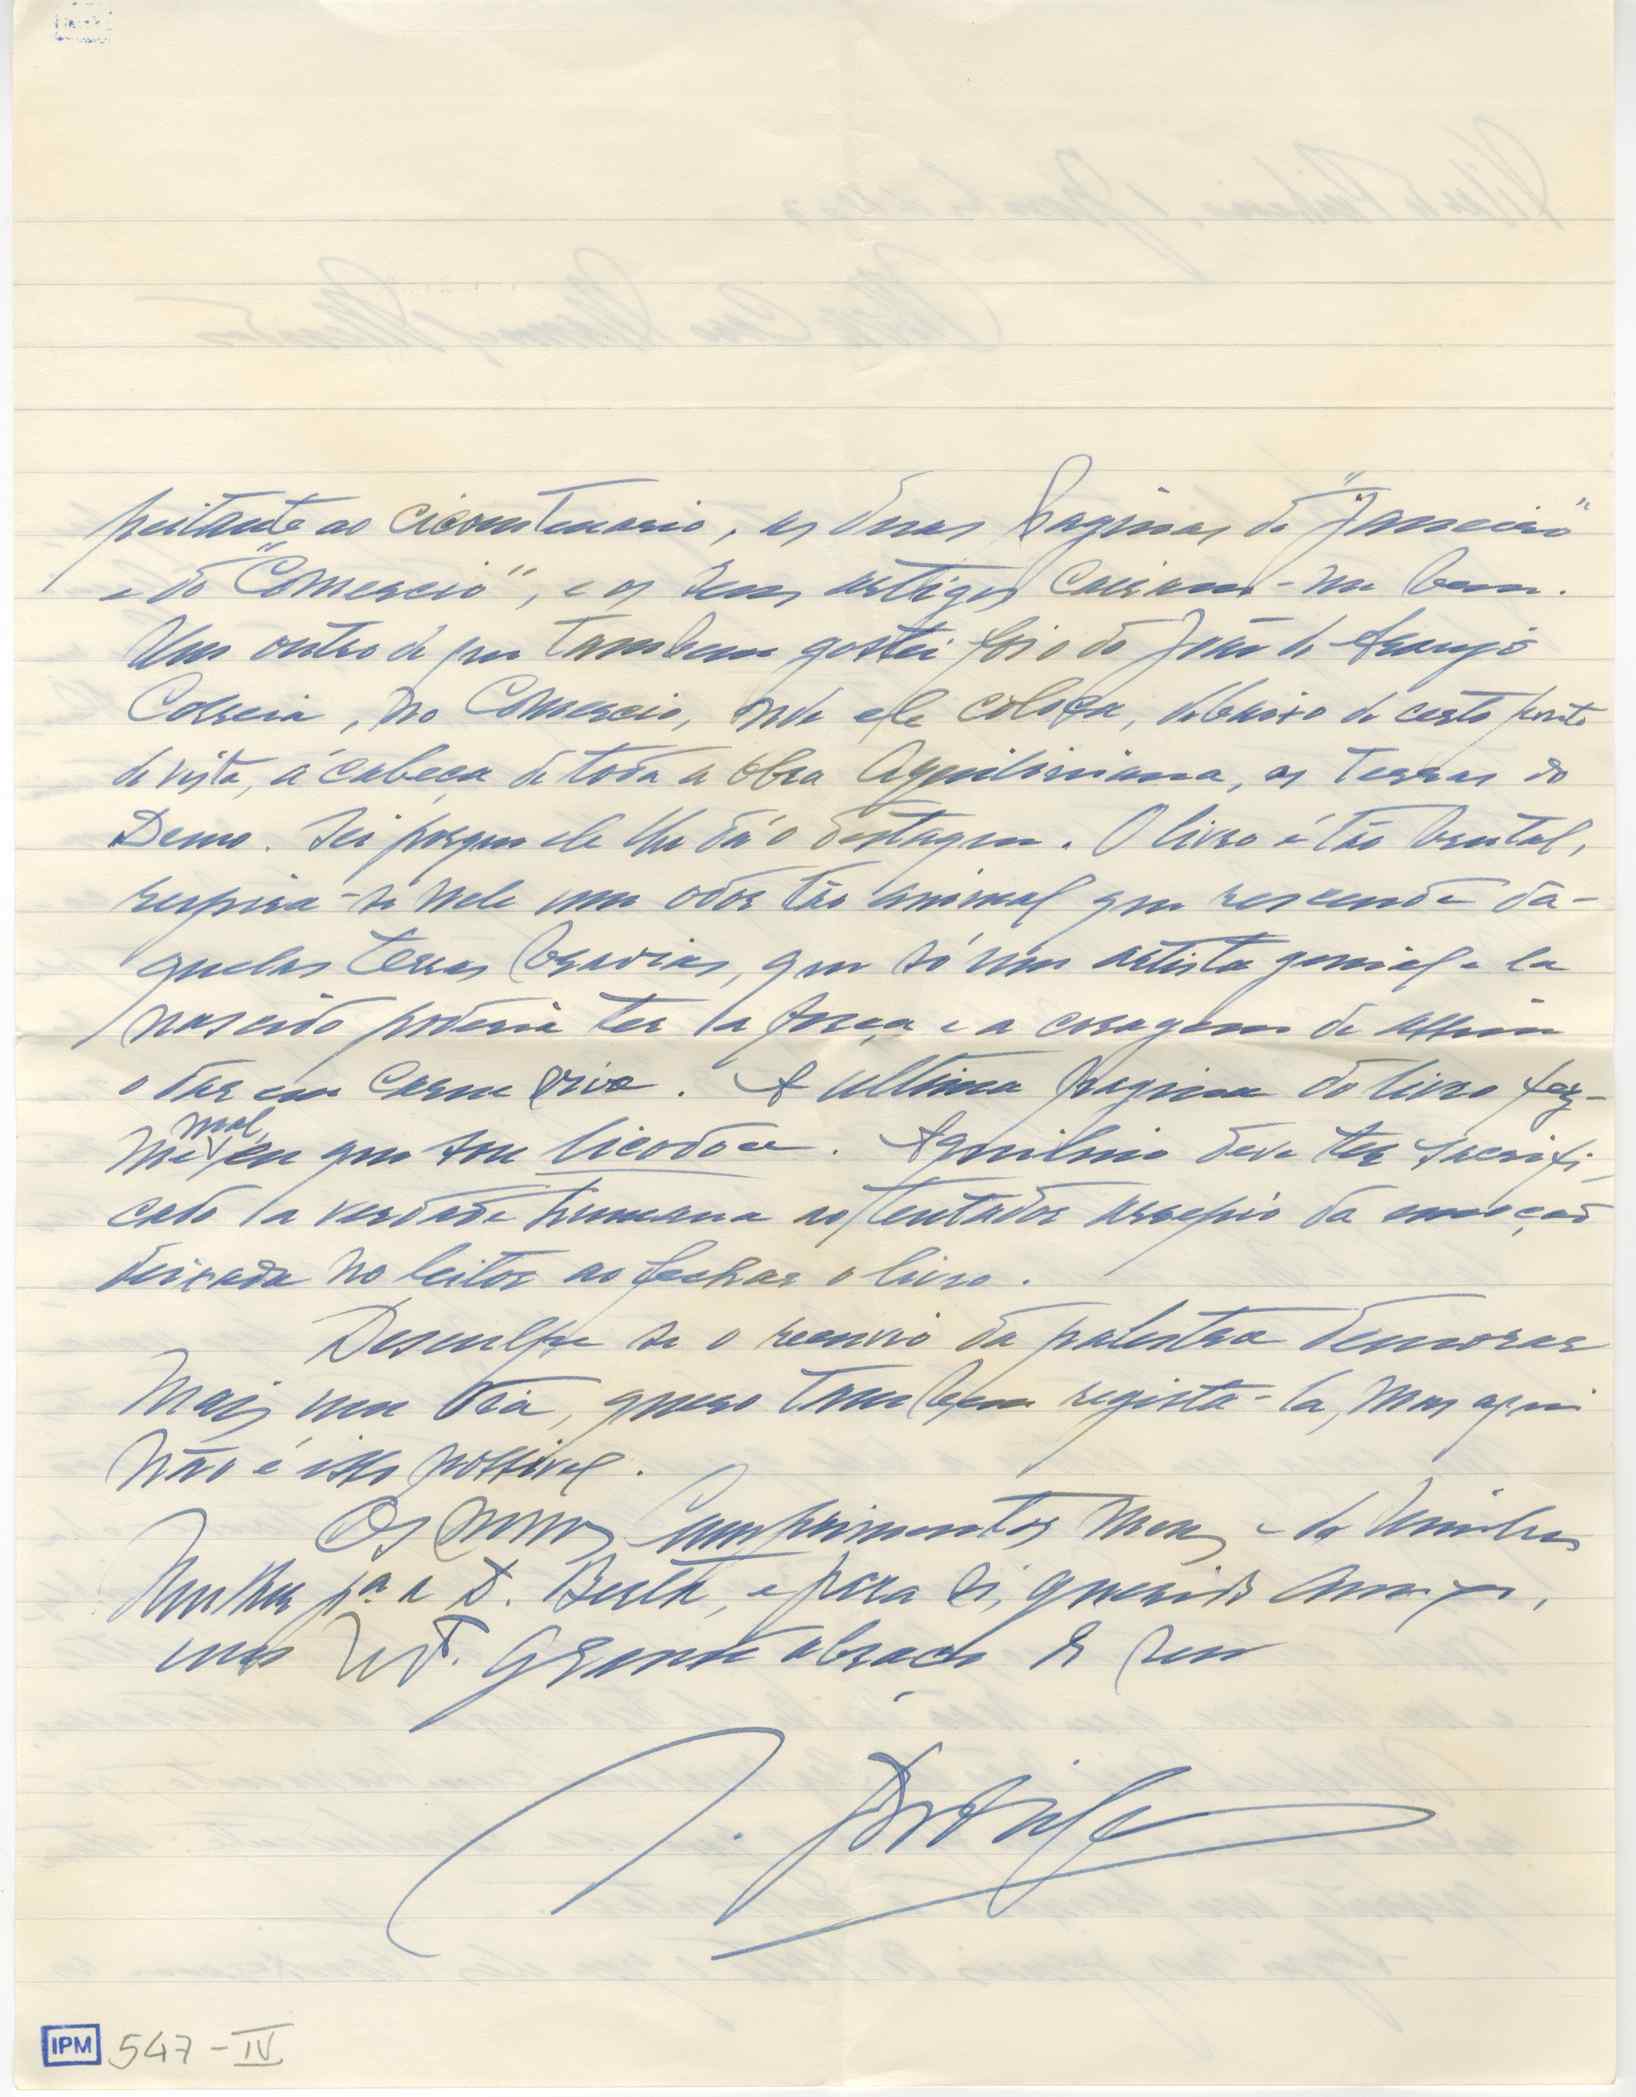 peitante ao cicontenario, as duas Paginas do "Janeiro"
e do "Comercio", e os seus artigos cairam-me bem.
Um outro de que tambem gostei foi o do João de Araujo
Correia, no Comercio, onde ele coloca, debaixo de certo ponto
de vista, á cabeça de toda a obra Aquiliniana, as Terras do
Demo. Sei porque ele lhe dá o destaque. O livro é tão brutal,
respira-se nele um odor tão animal que rescende da-
quelas terras bravias, que só um artista genial e la
nascido poderia ter a força e a coragem de assim
o dar em carne viva. A ultima pagina do livro faz-
me mal, eu que sou bicodoce. Aquilino deve ter sacrifi-
cado a verdade humana ao tentador arrepio da emoção
deixada no leitor ao fechar o livro.
Desculpe se o reenvio da palestra demorar
mais um dia, quero tambem registá-la, mas aqui
não é isso possivel.
Os cumprimentos meus e de minha
mulher pª a D. Berta, e para si, querido amigo,
um grande abraço do seu
IPM 547-IV